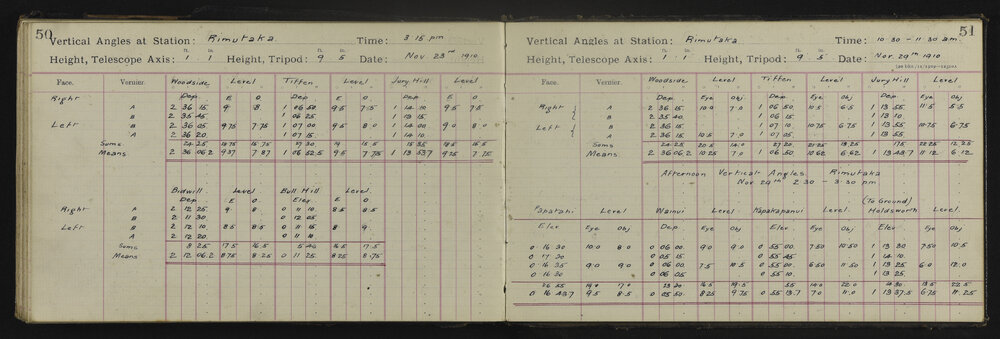 50
Vertical Angles at Station: Rimutaka. Time: 3 15 pm
Height, Telescope Axis: ft. 1 in. 1 Height, Tripod: ft. 9 in. 5 Date: Nov 23rd 1910
Face. Vernier. Woodside Level Tiffen Level Jury Hill Level
Dep. E O Dep. E O. Dep. E O.
Right A 2 36 15 9 8. 1 06 50 9.5 7.5 1 14 10 9.5 7.5
B 2 35 45 1 06 25 1 13 15
Left B 2 36 05 9.75 7.75 1 07 00 9.5 8.0 1 14 00 9.0 8.0
A 2 36 20 1 07 15 1 14 10
Sums 24 25 18.75 15.75 27 30 19 15.5 15 35 18.5 15.5
Means 2 36 06.2 9.37 7.87 1 06 52.5 9.5 7.75 1 13 53.7 9.25 7.75
Bidwill Level Bull Hill Level
Dep E O Elev E O
Right A 2 12 25 9 8 0 11 10 8.5 8.5
B 2 11 30 0 12 05
Left B 2 12 10 8.5 8.5 0 11 15 8 9
A 2 12 20 0 11 10
Sums 8 25 17.5 16.5 5 40 16.5 17.5
Means 2 12 06.2 8.75 8.25 0 11 25 8.25 8.75
51
Vertical Angles at Station: Rimutaka. Time: 10 30 - 11 30 am
Height, Telescope Axis: ft. 1 in. 1 Height, Tripod: ft. 9 in. 5 Date: Nov 29th 1910
Face. Vernier. Woodside Level Tiffen Level Jury Hill Level
Dep. Eye Obj Dep. Eye Obj. Dep Eye Obj.
Right A 2 36 15 10.0 7.0 1 06 50 10.5 6.5 1 13 55 11.5 5.5
B 2 35 40 1 06 15 1 13 10
Left B 2 36 15 1 07 10 10.75 6.75 1 13 55 10.75 6.75
A 2 36 15 10.5 7.0 1 07 05 1 13 55
Sums 24 25 20.5 14.0 27 20 21.25 13.25 175 22.25 12.25
Means 2 36 06.2 10.25 7.0 1 06 50 10.62 6.62 1 13 43.7 11.12 6.12
Afternoon Vertical Angles Rimutaka
Nov 29th 2 30 - 3 30 pm
(To Ground)
Papatahi Level Wainui Level Kapakapanui Level Holdsworth Level
Elev Eye Obj Dep. Eye Obj Elev. Eye Obj Elev Eye Obj
0 16 30 10.0 8.0 0 06 00 9.0 9.0 0 55 00 7.50 10.50 1 13 30 7.50 10.5
0 17 20 0 05 15 0 55 45 1 14 10
0 16 35 9.0 9.0 0 06 00 7.5 10.5 0 55 00 6.50 11.50 1 13 25 6.0 12.0
0 16 30 0 06 05 0 55 10 1 13 25
26 55 19.0 17.0 23 20 16.5 19.5 55 14.0 22.0 4 30 13.5 22.5
0 16 43.7 9.5 8.5 0 05 50 8.25 9.75 0 55 13.7 7.0 11.0 1 13 37.5 6.75 11.25